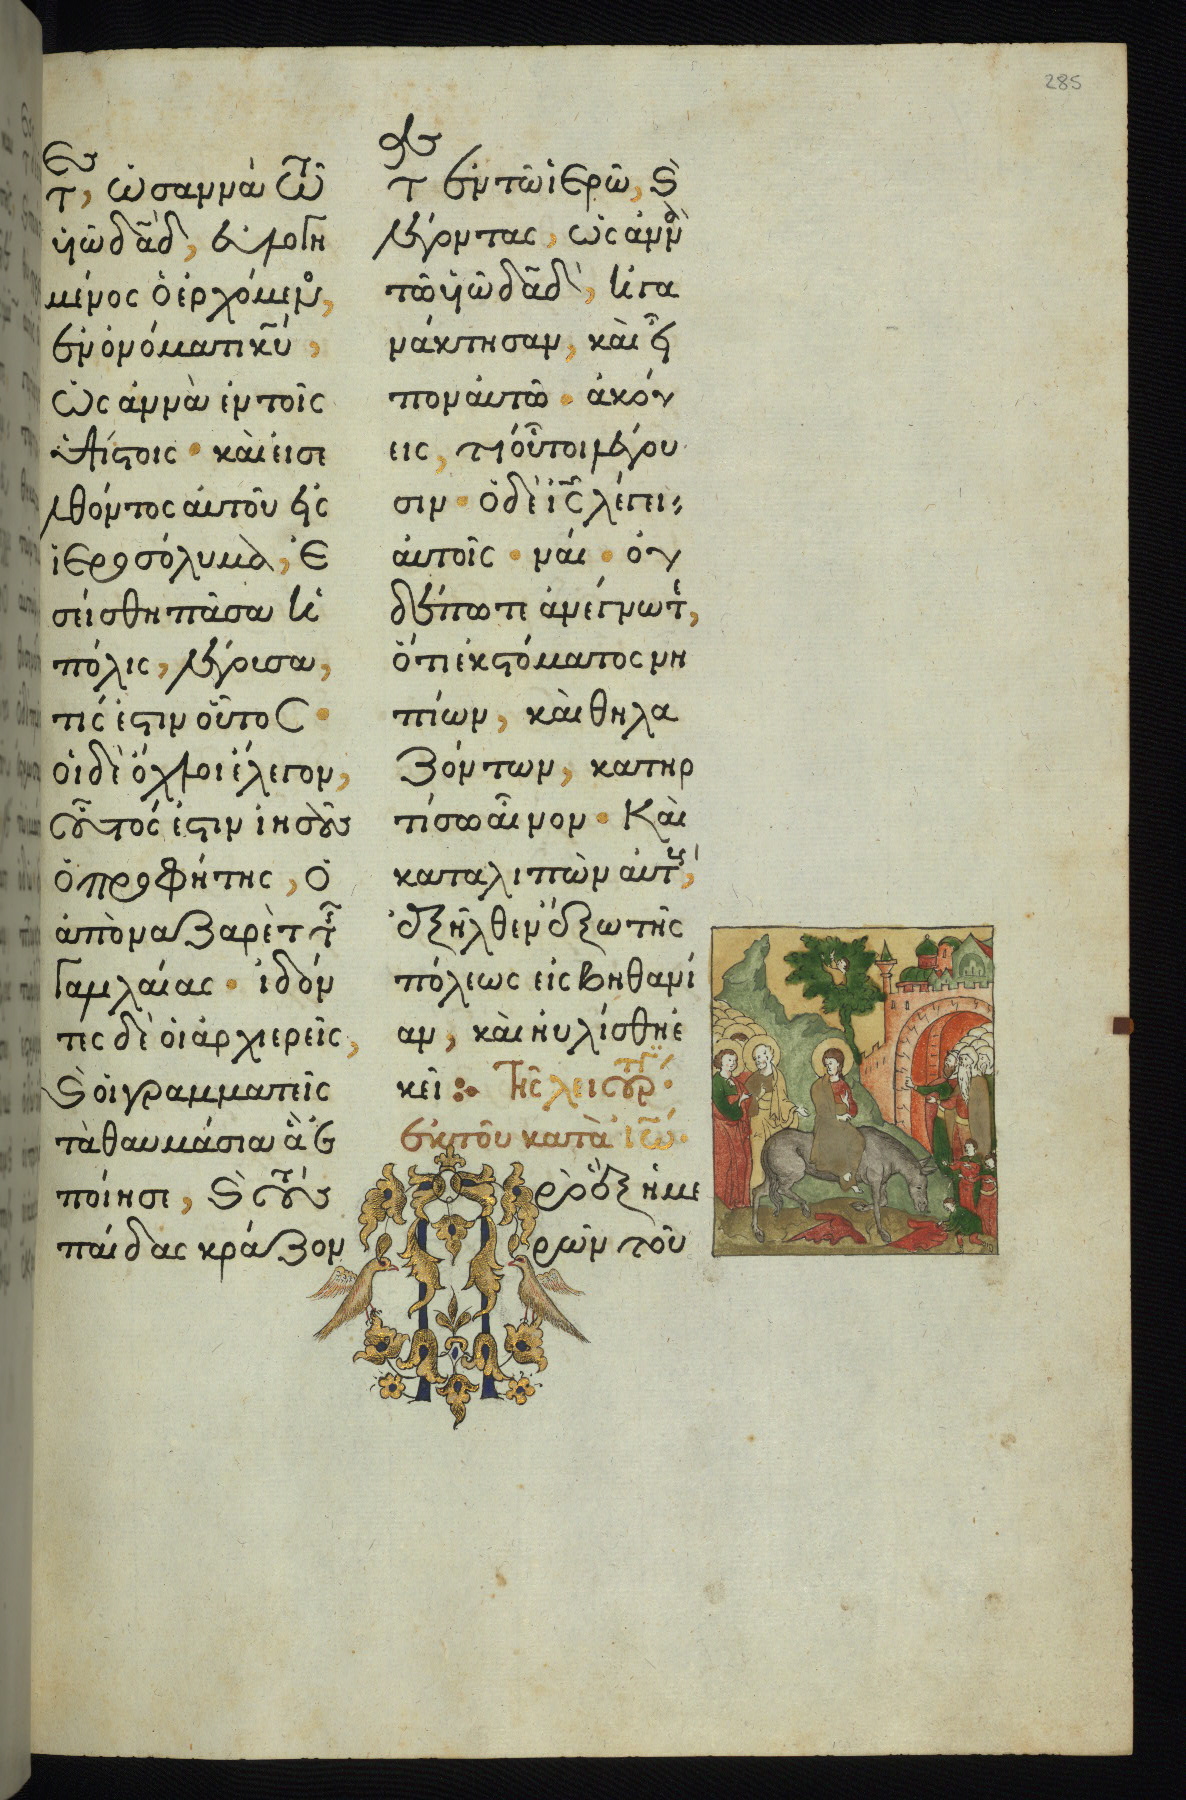 285
τ, ὡσαννὰ τῶ
ὑιῶ δᾱδ, εὐλογη
μένος ὁ ἐρχόμενος,
ἐν ὀνόματι κ̄υ,
ὡς ἀννὰ ἐν τοῖς
ὑψίστοις · καὶ εἰσε
λθόντος αὐτοῦ εἰς
ἱεροσόλυμα, ἐ
σείσθη πᾶσα ἡ
πόλις, λέγουσα,
τίς ἐστιν οὗτος ·
οἱ δὲ ὄχλοι ἔλεγον,
οὗτός ἐστιν ἰησοῦς
ὁ προφήτης, ὁ
ἀπὸ ναζαρὲτ τῆς
γαλιλαίας · ἰδόν
τες δὲ οἱ ἀρχιερεῖς,
ϗ οἱ γραμματεῖς
τὰ θαυμάσια ἃ ἐ
ποίησε, ϗ τοὺς
παῖδας κράζον
τ ἐν τῶ ἱερῶ, ϗ
λέγοντας, ὡς ἀννὰ
τῶ ὑιῶ δᾱδ, ἠγα
νάκτησαν, καὶ εἶ
πον αὐτῶ · ἀκού
εις, τί οὗτοι λέγου
σιν · ὁ δὲ ἰ̄ς λέγει
αὐτοῖς · ναί · οὐ
δέποτε ἀνέγνωτε,
ὅτι ἐκ στόματος νη
πίων, καὶ θηλα
ζόντων, κατηρ
τίσω αἶνον · Καὶ
καταλιπὼν αὐτοὺς,
ἐξῆλθεν ἔξω τῆς
πόλεως εἰς βηθανί
αν, καὶ ηὐλίσθη ἐ
κεῖ : Τῆς λειτουργ ·
ἐκ τοῦ κατὰ ἰω ·
Πρὸ ἓξ ἡμε
ρῶν τοῦ